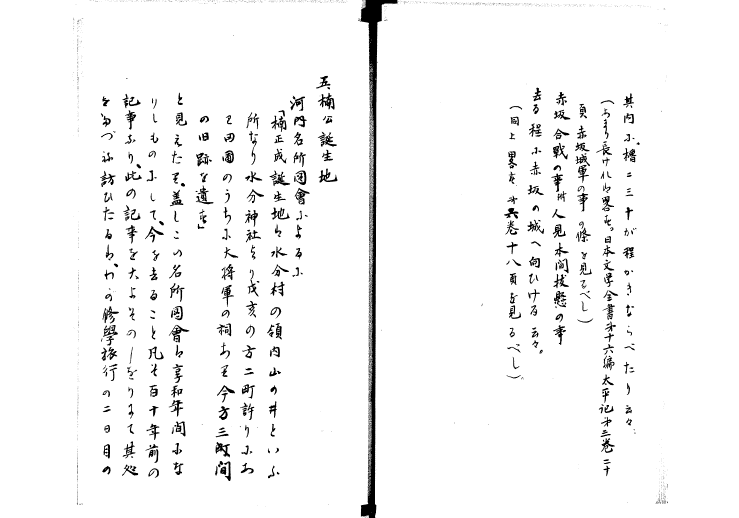 其内に、櫓二三十が程かきならべたり云々、
(あまり長ければ略す。日本文学全書第十六編太平記第三巻二十
頁 赤坂城軍の事の條を見るべし)
赤坂合戦の事附人見本間抜懸の事
去る程に赤坂の城へ向ひける云々。
(同上 畧す 第六巻十八頁を見るべし)。
五、楠公誕生地
河内名所図會によるに
「楠正成誕生地は水分村の領内山の井といふ
所なり水分神社より戌亥の方二町許りにあ
て田圃のうちに大将軍の祠あり今方三町間
の旧跡を遺す」
と見えたり、蓋しこの名所図會は享和年間にな
りしものにして、今を去ること凡そ百十年前の
記事なり、此の記事を大よそのしをりにて其処
をたづね訪ひたるは、わが修學旅行の二日目の